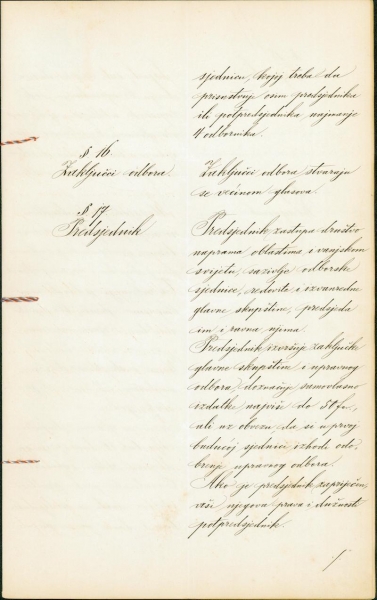 sjednicu, kojoj treba da
prisustvuje osim predsjednika
ili potpredsjednika najmanje
4 odbornika.
§ 16
Zaključci odbora
Zaključci odbora stvaraju
se većinom glasova.
§ 17
Predsjednik
Predsjednik zastupa društvo
naprama oblastima i vanjskom
svijetu, saziva odborske
sjednice, redovite i izvanredne
glavne skupštine, predsjeda
im i ravna njima.
Predsjednik izvršuje zaključke
glavne skupštine i upravnog
odbora, doznačuje samovlasno
izdatke najviše do 50 for,
ali uz obvezu da si u prvoj
budućoj sjednici izhodi odo-
brenje upravnog odbora.
Ako je predsjednik zapriječen,
vrši njegova prava i dužnosti
potpredsjednik.